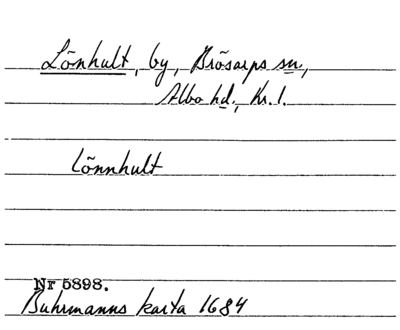 Lönhult, by, Brösarps sn,
Albo hd, Kr. l.
Lönnhult
Nr 5898.
Buhrmanns karta 1684